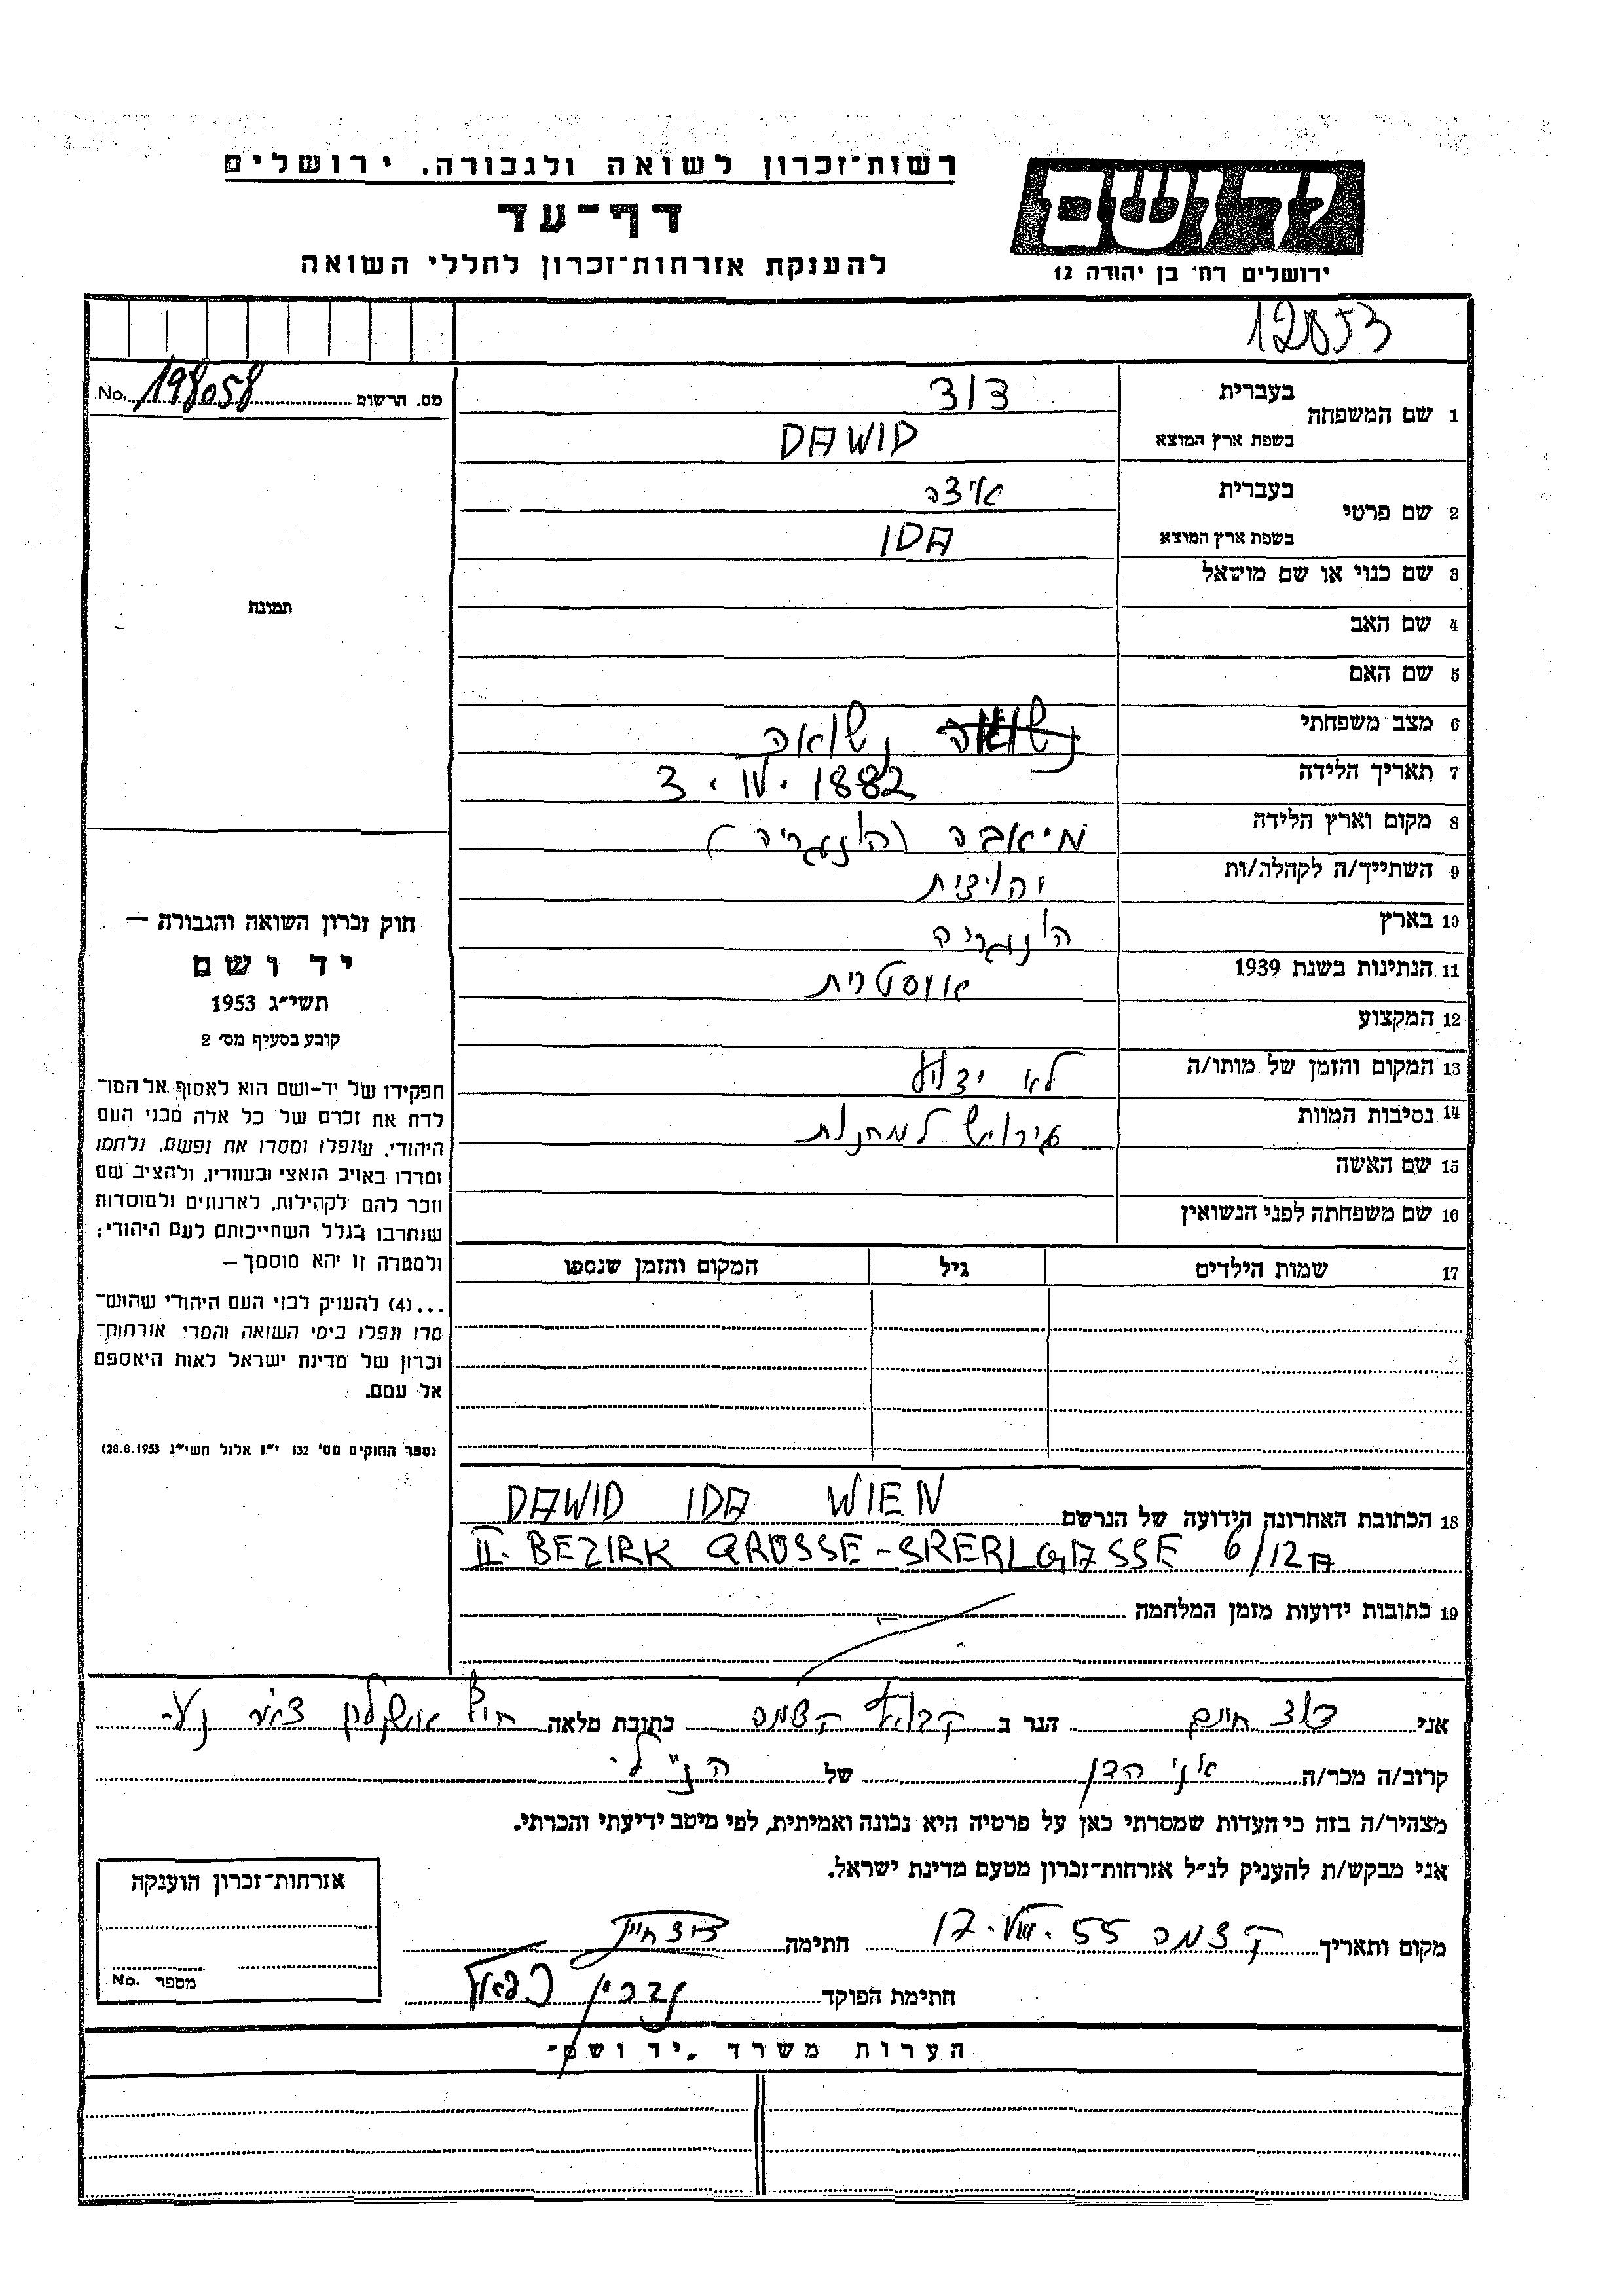 רשות־זכרון לשואה ולגבורה. ירושלים
דף־עד
להענקת אזרחות־זכרון לחללי השואה
יד ושם
ירושלים רח׳ בן יהודה 12
12053
No. 198058 מס. הרשום
תמונה
1 שם המשפחה
בעברית דוד
בשפת ארץ המוצא DAWID
2 שם פרטי
בעברית אידה
בשפת ארץ המוצא IDA
3 שם כנוי או שם מושאל
4 שם האב
5 שם האם
6 מצב משפחתי נשואה נשואה
7 תאריך הלידה 3 . IV . 1882
8 מקום וארץ הלידה (הונגריה)
9 השתייך/ה לקהלה/ות יהודית
10 בארץ הונגריה
11 הנתינות בשנת 1939 אוסטרית
12 המקצוע
13 המקום והזמן של מותו/ה לא ידוע
14 נסיבות המוות גירוש למחנות
15 שם האשה
16 שם משפחתה לפני הנשואין
17 שמות הילדים גיל המקום והזמן שנספו
חוק זכרון השואה והגבורה —
יד ושם
תשי״ג 1953
קובע בסעיף מס׳ 2
תפקידו של יד-ושם הוא לאסוף אל המו־
לדת את זכרם של כל אלה מבני העם
היהודי, שנפלו ומסרו את נפשם, נלחמו
ומרדו באויב הנאצי ובעוזריו, ולהציב שם
וזכר להם לקהילות, לארגונים ולמוסדות
שנחרבו בגלל השתייכותם לעם היהודי;
ולמטרה זו יהא מוסמך —
...(4) להעניק לבני העם היהודי שהוש־
מדו ונפלו בימי השואה והמרי אזרחות־
זכרון של מדינת ישראל לאות היאספם
אל עמם.
(ספר החוקים מס׳ 132 י״ז אלול תשי״ג 28.8.1953)
18 הכתובת האחרונה הידועה של הנרשם DAWID IDA WIEN
II. BEZIRK GROSSE-SRERLGASSE 6/12A
19 כתובות ידועות מזמן המלחמה
אני דוד חיים הגר ב קבוץ קדמה כתובת מלאה חוף אשקלון דאר נע
קרוב/ה מכר/ה של הנ״ל
מצהיר/ה בזה כי העדות שמסרתי כאן על פרטיה היא נכונה ואמיתית, לפי מיטב ידיעתי והכרתי.
אני מבקש/ת להעניק לנ״ל אזרחות־זכרון מטעם מדינת ישראל.
מקום ותאריך קדמה 17.VIII.55 חתימה דוד חיים
חתימת הפוקד
אזרחות־זכרון הוענקה
מספר No.
הערות משרד „יד ושם״